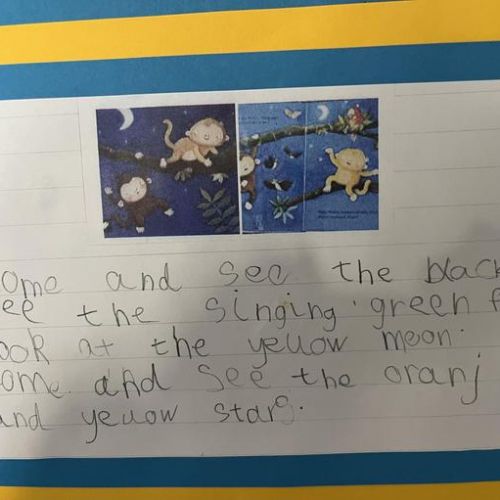 ome and see the black
ee the singing green f
ook at the yellow moon.
ome and see the oranj
and yellow stars.